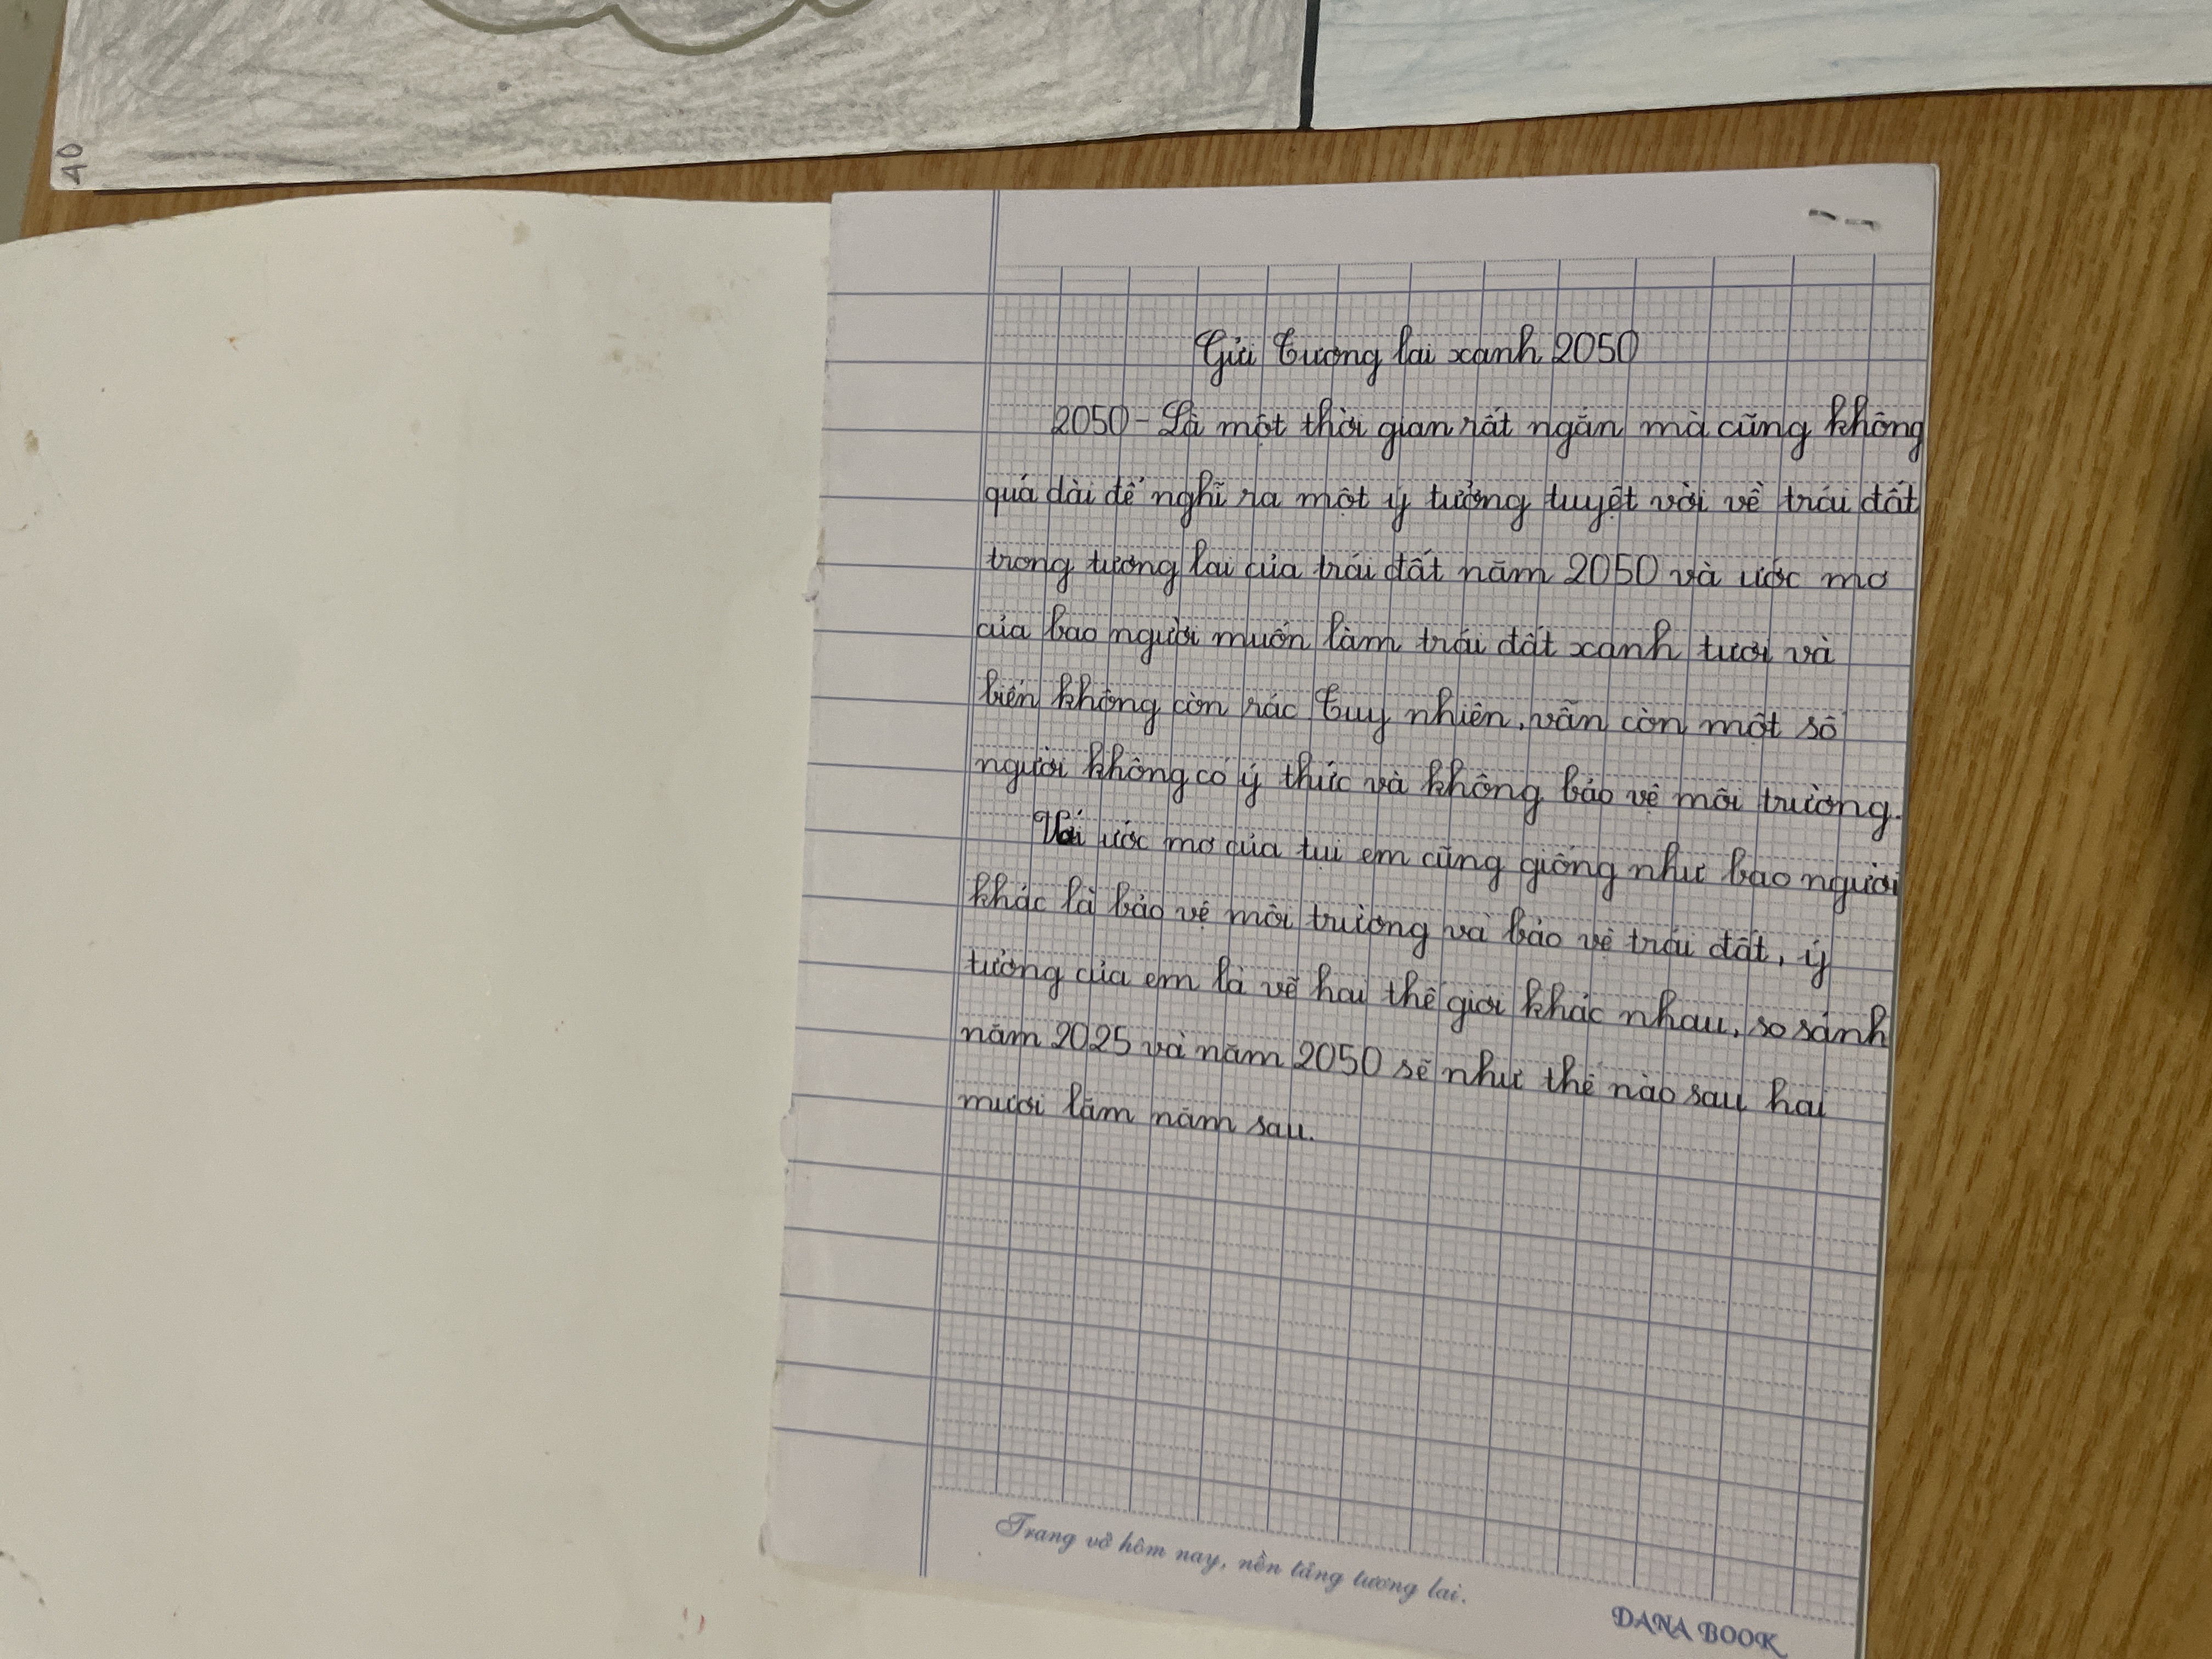 40
Gửi Tương lai xanh 2050
2050 - Là một thời gian rất ngắn mà cũng không
quá dài để nghĩ ra một ý tưởng tuyệt vời về trái đất
trong tương lai của trái đất năm 2050 và ước mơ
của bao người muốn làm trái đất xanh tươi và
biển không còn rác Tuy nhiên, vẫn còn một số
người không có ý thức và không bảo vệ môi trường.
Với ước mơ của tụi em cũng giống như bao người
khác là bảo vệ môi trường và bảo vệ trái đất, ý
tưởng của em là vẽ hai thế giới khác nhau, so sánh
năm 2025 và năm 2050 sẽ như thế nào sau hai
mươi lăm năm sau.
Trang vở hôm nay, nền tảng tương lai.
DANA BOOK